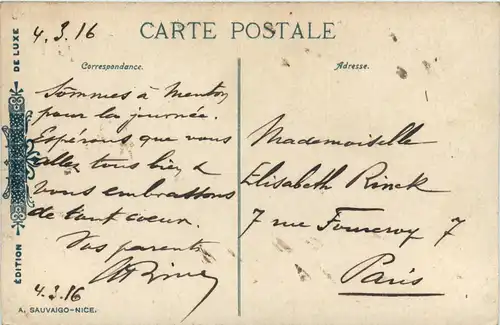 4.3.16
CARTE POSTALE
Correspondance.
Adresse.
Sommes à Menton
pour la journée.
Espérons que vous
allez tous bien &
vous embrassons
de tout coeur.
Vos parents
4.3.16
Mademoiselle
Elisabeth Rinck
7 rue Fourcroy 7
Paris
ÉDITION DE LUXE
A. SAUVAIGO-NICE.